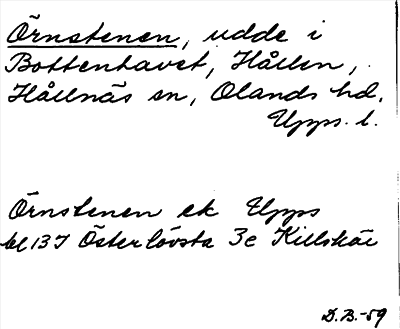 Örnstenen, udde i
Bottenhavet, Hållen,
Hållnäs sn, Olands hd.
Upps. l.
Örnstenen ek Upps
bl 137 Österlövsta 3c Killskär
D.B.-59